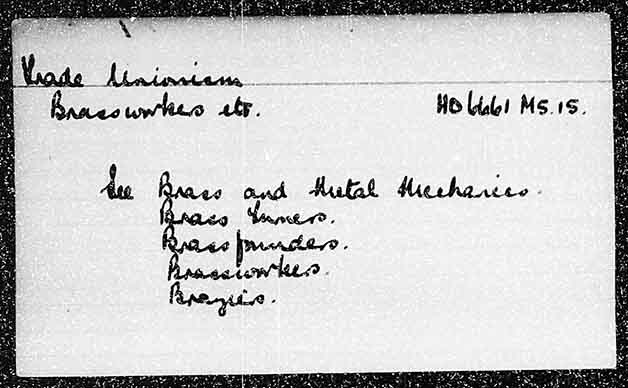 Trade Unionism
Brassworkers etc. HD6661 M5.15.
See Brass and Metal Mechanics.
Brass Turners.
Brassfounders.
Brassworkers.
Braziers.